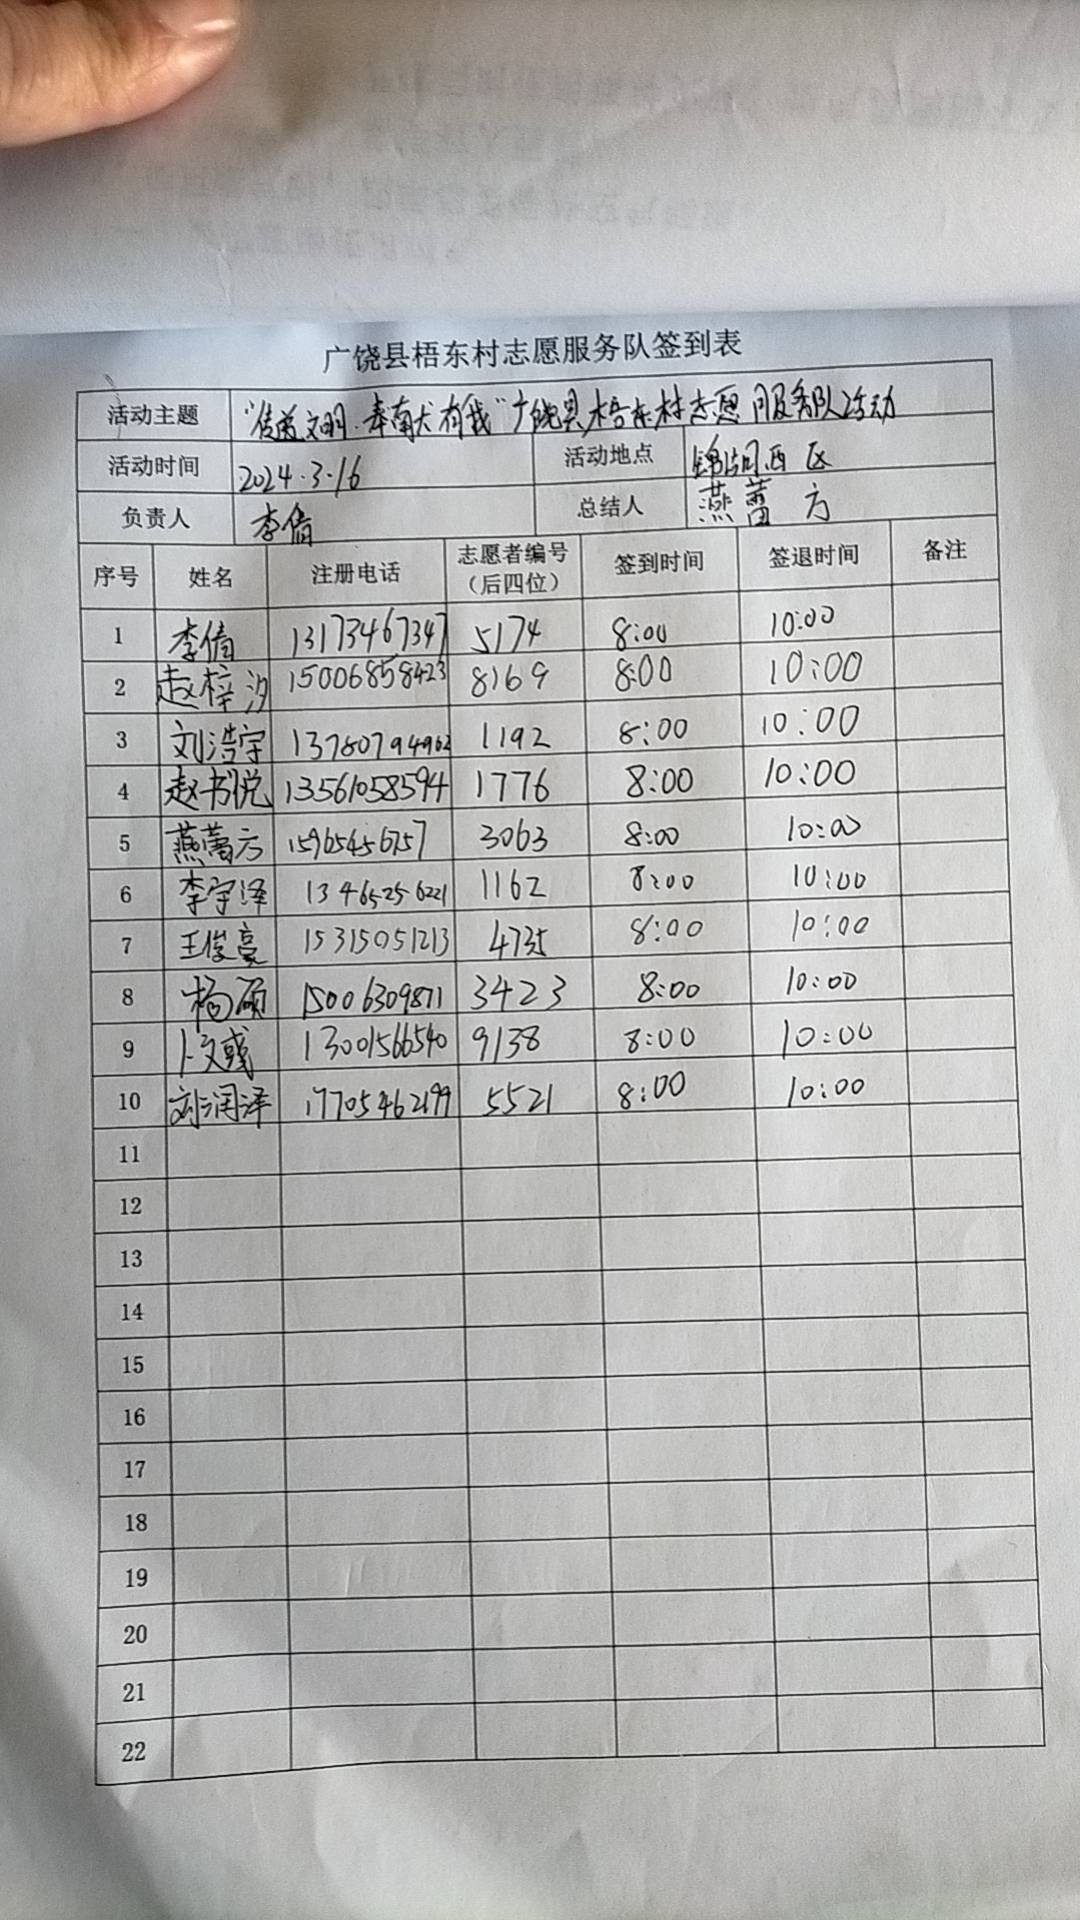 广饶县梧东村志愿服务队签到表
活动主题 "传递文明·奉献有我"广饶县梧东村志愿服务队活动
活动时间 2024.3.16 活动地点 锦湖西区
负责人 李倩 总结人 燕蕾方
序号 姓名 注册电话 志愿者编号（后四位） 签到时间 签退时间 备注
1 李倩 13173467347 5174 8:00 10:00
2 赵梓汐 15006858423 8169 8:00 10:00
3 刘浩宇 13780794962 1192 8:00 10:00
4 赵书悦 13561058594 1776 8:00 10:00
5 燕蕾方 15965456757 3063 8:00 10:00
6 李宇泽 13465256221 1162 8:00 10:00
7 王俊豪 15315051213 4735 8:00 10:00
8 杨硕 15006309871 3423 8:00 10:00
9 卜文彧 13001566540 9138 8:00 10:00
10 刘润泽 17705462199 5521 8:00 10:00
11
12
13
14
15
16
17
18
19
20
21
22